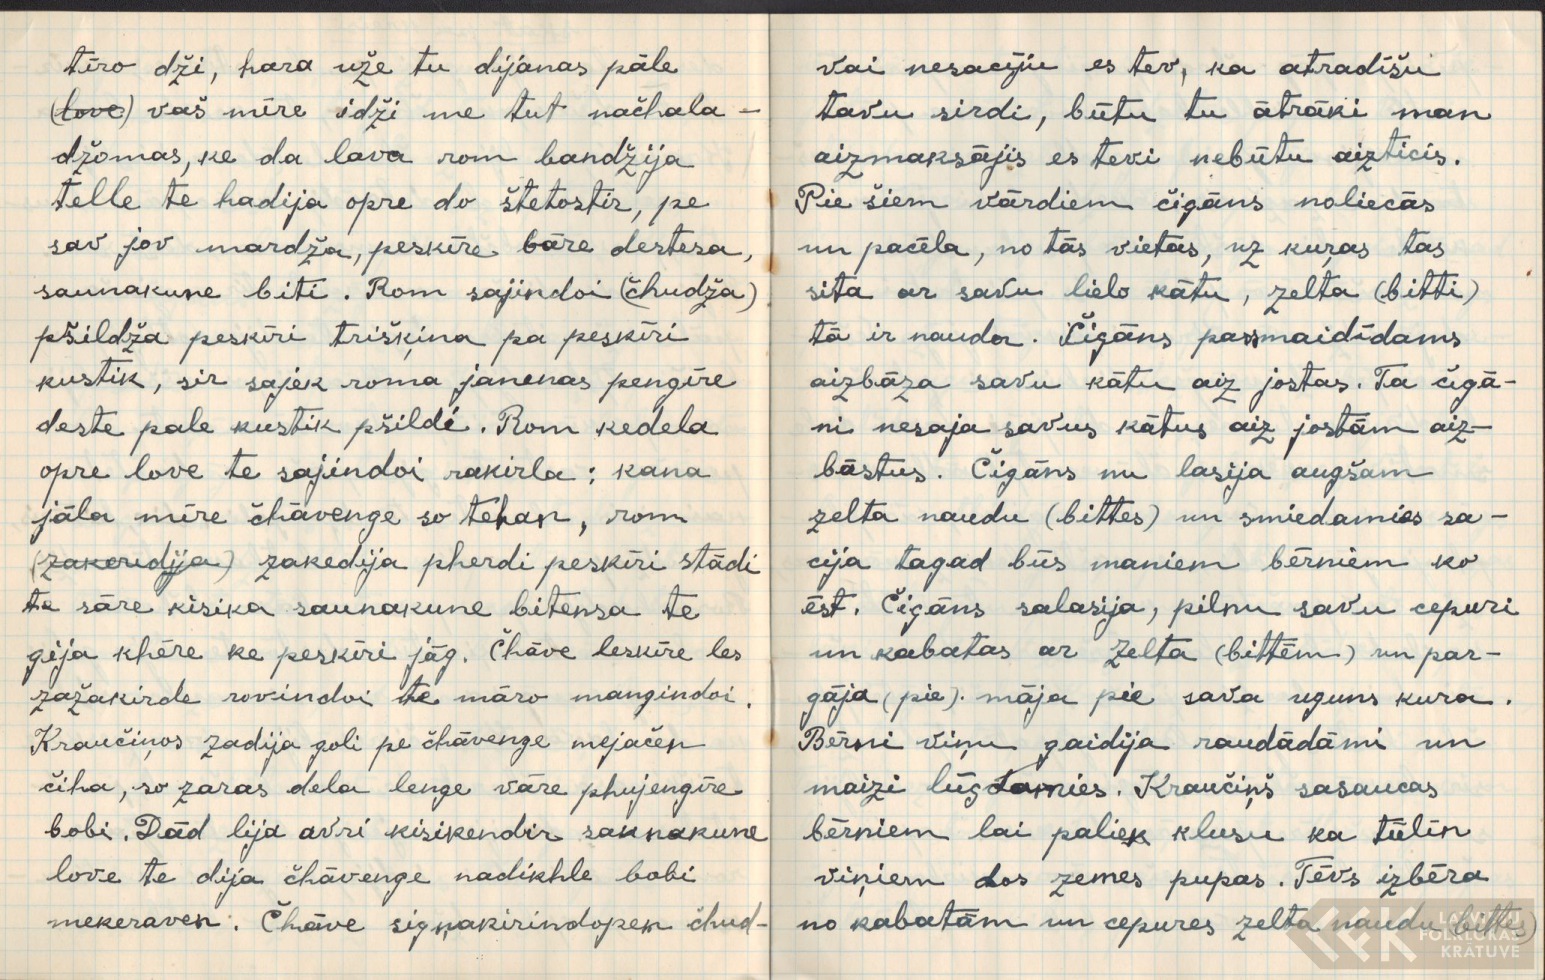 tīro dži, hara uže tu dijanas pāle
(love) vaš mīre idži me tut načhala-
džomas, ke da lava rom bandžija
telle te hadija opre do štetostir, pe
sav jov mardža, peskīre bāre destesa,
saunakune biti. Rom sajindoi (čhudža)
pšildža peskīri trišķina pa peskīri
kustik, sir sajek roma janenas pengīre
deste pale kustik pšildi. Rom kedela
opre love te sajindoi rakirla: kana
jāla mīre čhāvenge so tehan, rom
(zakerudija) zakedija pherdi peskīri stādi
te sāre kisika saunakune bitensa te
gija khēre ke peskīri jāg. Čhāve leskīre les
zažakirde rovindoi te māro mangindoi.
Kraučiņos zadija goli pe čhāvenge mejačen
čiha, so zaras dela lenge vāre phujengīre
bobi. Dād lija avri kisikendir saknakune
love te dija čhāvenge nadikhle bobi
mekeraven. Čhāve sigņakirindopen čhud-
vai nesacīju es tev, ka atradīšu
tavu sirdi, būtu tu ātrāki man
aizmaksājis es tevi nebūtu aizticis.
Pie šiem vārdiem čigāns noliecās
un pacēla, no tās vietas, uz kuŗas tas
sita ar savu lielo kātu, zelta (bitti)
tā ir nauda. Čigāns pasmaidīdams
aizbāza savu kātu aiz jostas. Ta čigā-
ni nesaja savus kātus aiz jostām aiz-
bāstus. Čigāns nu lasija augšam
zelta naudu (bittes) un smiedamies sa-
cija tagad būs maniem bērniem ko
ēst. Čigāns salasija, pilnu savu cepuri
un kabatas ar zelta (bittēm) un par-
gāja (pie). māja pie sava uguns kura.
Bērni viņu gaidija raudādāmi un
maizi lūgdamies. Kraučiņš sasaucas
bērniem lai paliek klusu ka tūlīn
viņiem dos zemes pupas. Tēvs izbēra
no kabatām un cepures zelta naudu (bittes)
LATVIEŠU
FOLKLORAS
KRĀTUVE